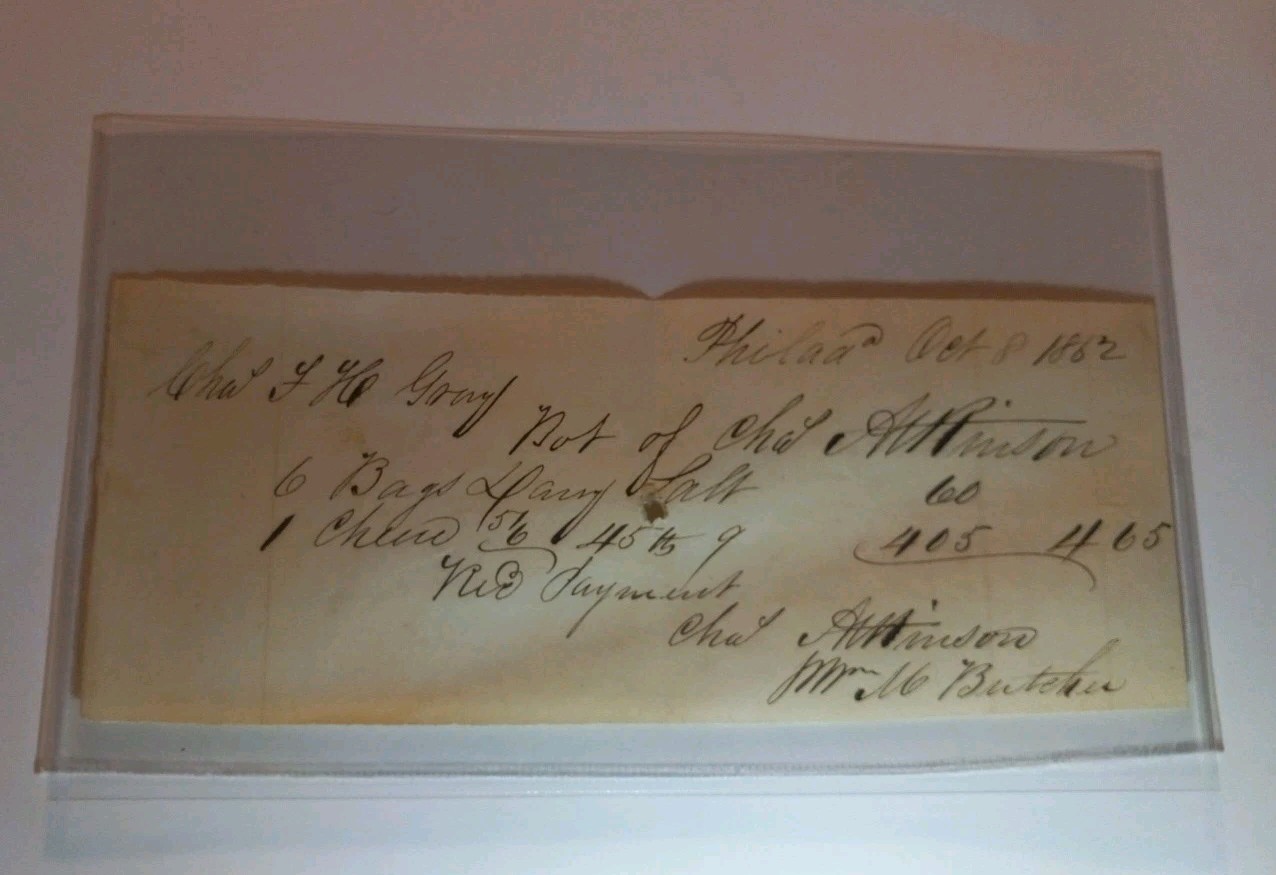 Philada Oct 8 1852
Chas F H Gray
Bot of Chas Atkinson
6 Bags Dairy Salt 60
1 Cheese 51/6 45 lb 9 405 465
Recd Payment
Chas Atkinson
Wm M Butcher